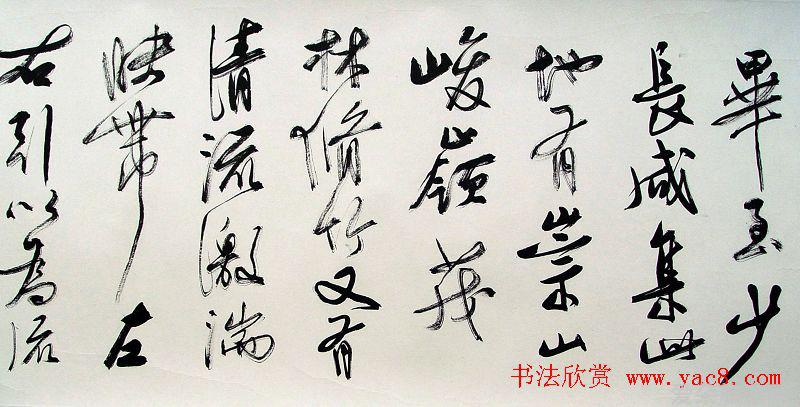 畢至少
長咸集此
地有崇山
峻嶺茂
林脩竹又有
清流激湍
映帶左
右引以為流
书法欣赏 www.yac8.com